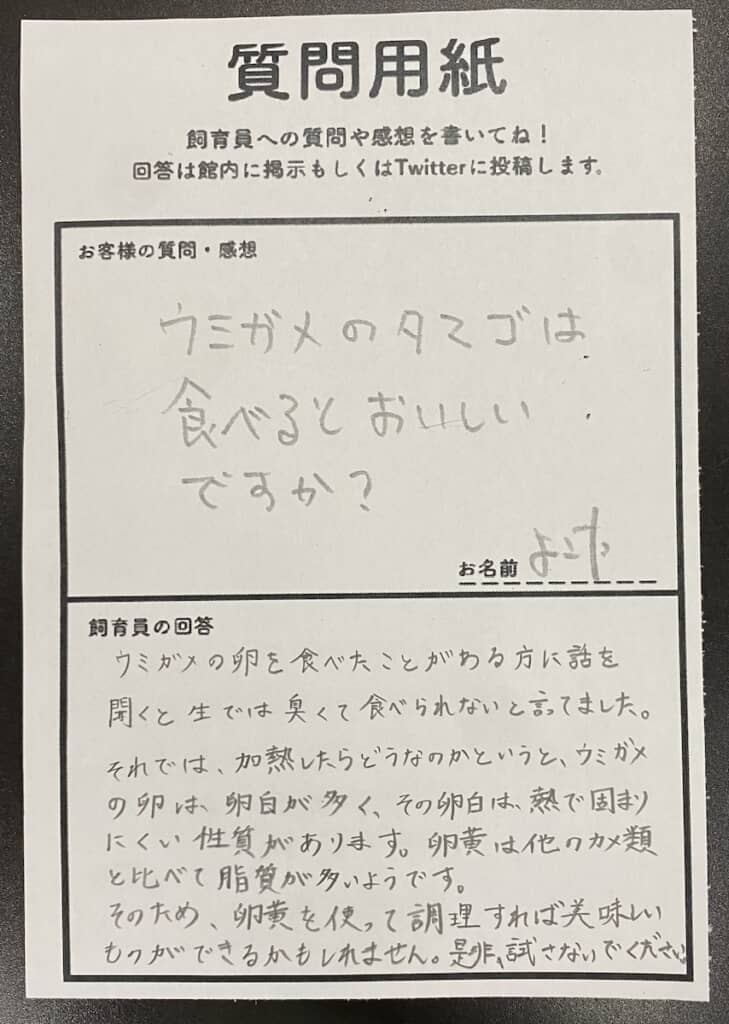 質問用紙
飼育員への質問や感想を書いてね！
回答は館内に掲示もしくはTwitterに投稿します。
お客様の質問・感想
ウミガメのタマゴは
食べるとおいしい
ですか？
お名前 よこた
飼育員の回答
ウミガメの卵を食べたことがある方に話を
聞くと生では臭くて食べられないと言ってました。
それでは、加熱したらどうなのかというと、ウミガメ
の卵は、卵白が多く、その卵白は、熱で固まり
にくい性質があります。卵黄は他のカメ類
と比べて脂質が多いようです。
そのため、卵黄を使って調理すれば美味しい
ものができるかもしれません。是非、試さないでください